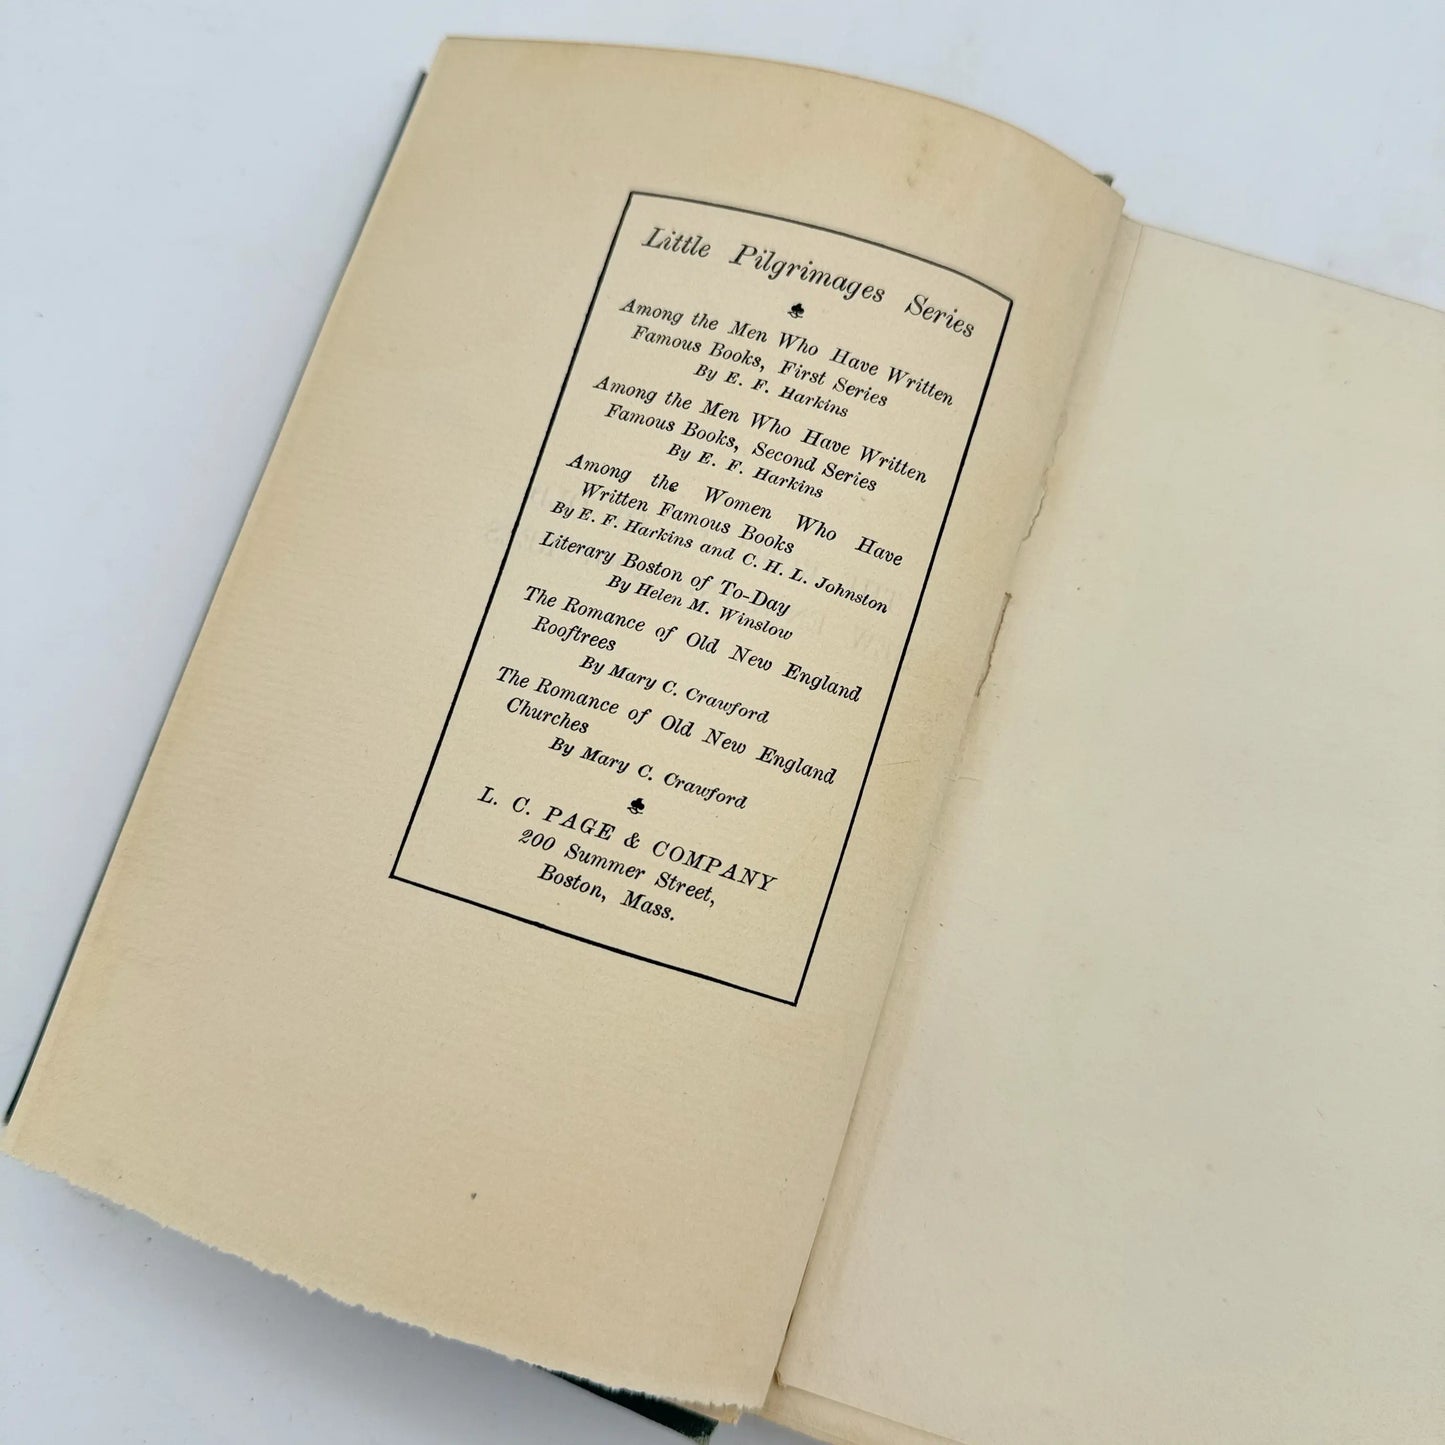 Little Pilgrimages Series
Among the Men Who Have Written
Famous Books, First Series
By E. F. Harkins
Among the Men Who Have Written
Famous Books, Second Series
By E. F. Harkins
Among the Women Who Have
Written Famous Books
By E. F. Harkins and C. H. L. Johnston
Literary Boston of To-Day
By Helen M. Winslow
The Romance of Old New England
Rooftrees
By Mary C. Crawford
The Romance of Old New England
Churches
By Mary C. Crawford
L. C. PAGE & COMPANY
200 Summer Street,
Boston, Mass.